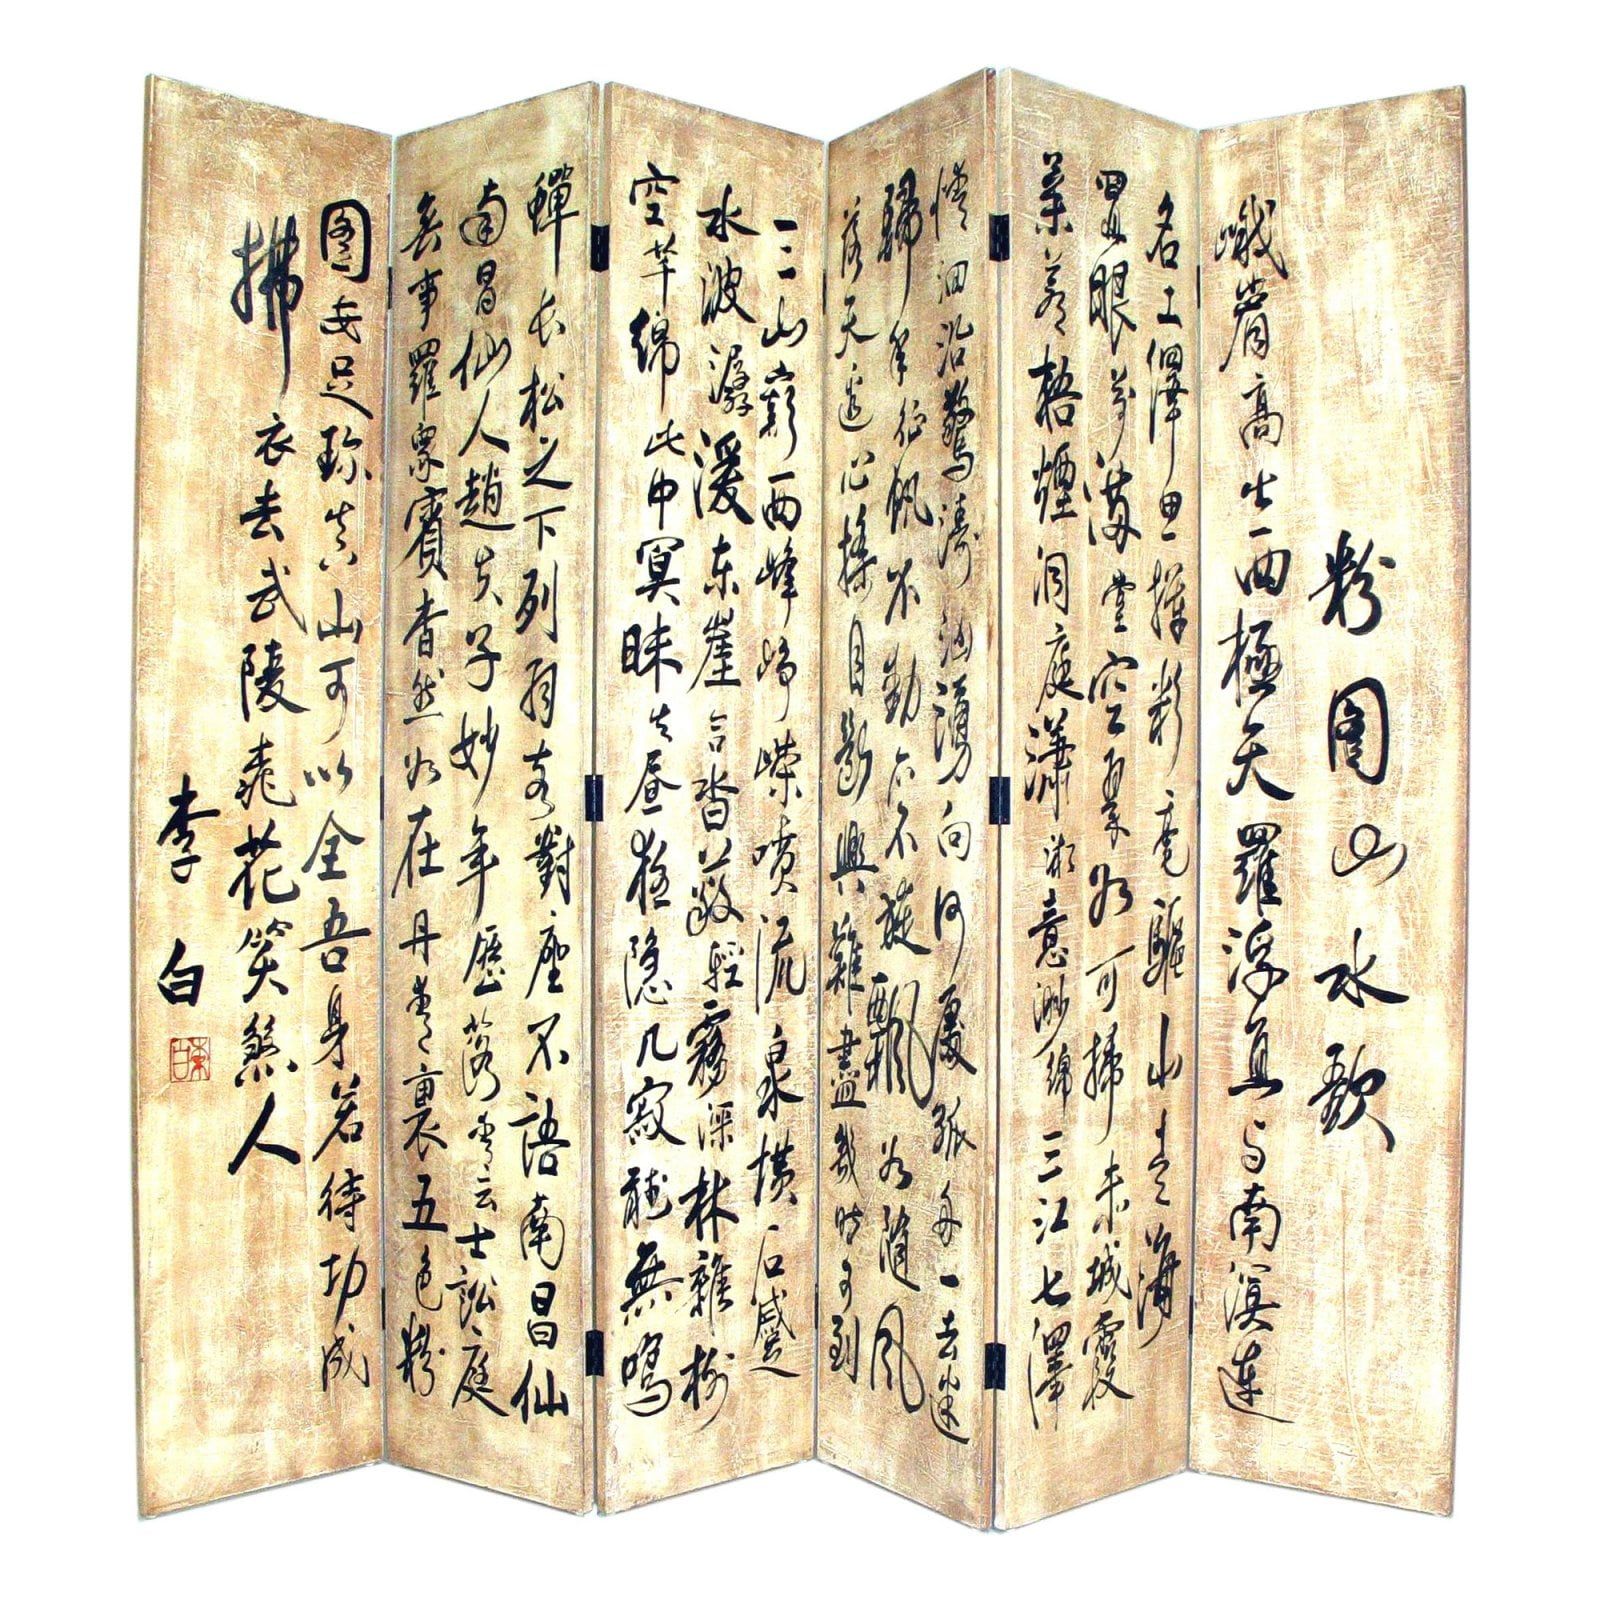 粉图山水歌
峨眉高出西極天羅浮直与南溟連
名工繹思揮彩毫驅山走海
置眼前滿堂空翠如可掃赤城霞
氣蒼梧煙洞庭瀟湘意渺綿三江七澤
情洄沿驚濤洶湧向何處孤舟一去迷
歸年征帆不動亦不旋飄如隨風
落天邊心搖目斷興難盡幾時可到
三山巔西峰崢嶸噴流泉橫石蹙
水波潺湲东崖合沓蔽輕霧深林雜樹
空芊綿此中冥昧失昼夜隐几寂聽無鳴
蟬长松之下列羽客對座不語南昌仙
南昌仙人趙夫子妙年歷落青云士訟庭
無事羅眾賓杳然如在丹青裏五色粉
图安足珍真山可以全吾身若待功成
拂衣去武陵桃花笑煞人
李白